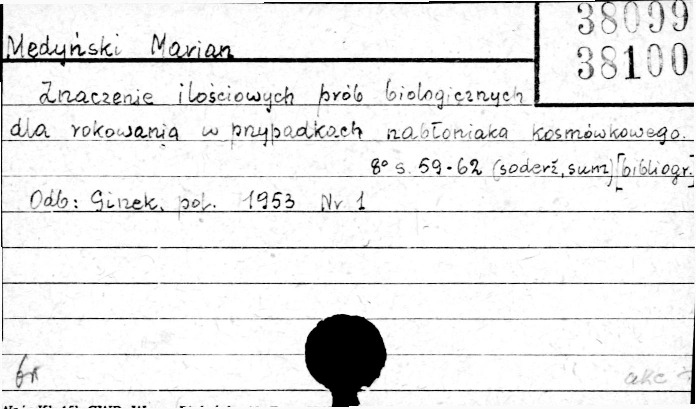 38099
Mędyński Marian
38100
Znaczenie ilościowych prób biologicznych
dla rokowania w przypadkach nabłoniaka kosmówkowego.
8° s. 59-62 (soderž, sum) [bibliogr.]
Odb: Ginek. pol. 1953 Nr 1
akc